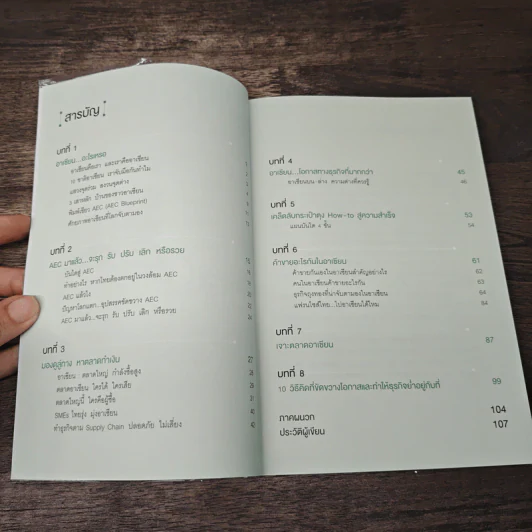 สารบัญ
บทที่ 1
อาเซียน...อะไรหรอ
อาเซียนคือเรา และเราคืออาเซียน
10 ชาติอาเซียน เราจับมือกันทำไม
แสดงจุดร่วม สงวนจุดต่าง
3 เสาหลัก บ้านของชาวอาเซียน
พิมพ์เขียว AEC (AEC Blueprint)
ศักยภาพอาเซียนที่โลกจับตามอง
บทที่ 2
AEC มาแล้ว...จะรุก รับ ปรับ เลิก หรือรวย
บันไดสู่ AEC
ทำอย่างไร หากไทยต้องตกอยู่ในวงล้อม AEC
AEC แล้วไง
ปัญหาโลกแตก...อุปสรรคขัดขวาง AEC
AEC มาแล้ว...จะรุก รับ ปรับ เลิก หรือรวย
บทที่ 3
มองคู่ทาง หาตลาดทำเงิน 27
อาเซียน : ตลาดใหญ่ กำลังซื้อสูง
ตลาดอาเซียน ใครได้ ใครเสีย
ตลาดใหญ่นี้ ใครคือผู้ซื้อ
SMEs ไทยรุ่ง มุ่งอาเซียน
ทำธุรกิจตาม Supply Chain ปลอดภัย ไม่เสี่ยง
บทที่ 4
อาเซียน...โอกาสทางธุรกิจที่มากกว่า 45
อาเซียนบน-ล่าง ความต่างที่ควรรู้ 46
บทที่ 5
เคล็ดลับกระเป๋าตุง How-to สู่ความสำเร็จ 53
แผนบันได 4 ขั้น 54
บทที่ 6
ค้าขายอะไรกันในอาเซียน 61
ค้าขายกันเองในอาเซียนสำคัญอย่างไร 62
คนในอาเซียนค้าขายอะไรกัน 63
ธุรกิจถูกทองที่น่าจับตามองในอาเซียน 64
แฟรนไชส์ไทย...ไปอาเซียนได้ไหม 84
บทที่ 7
เจาะตลาดอาเซียน 87
บทที่ 8
10 วิธีคิดที่ขัดขวางโอกาสและทำให้ธุรกิจย่ำอยู่กับที่ 99
ภาคผนวก 104
ประวัติผู้เขียน 107